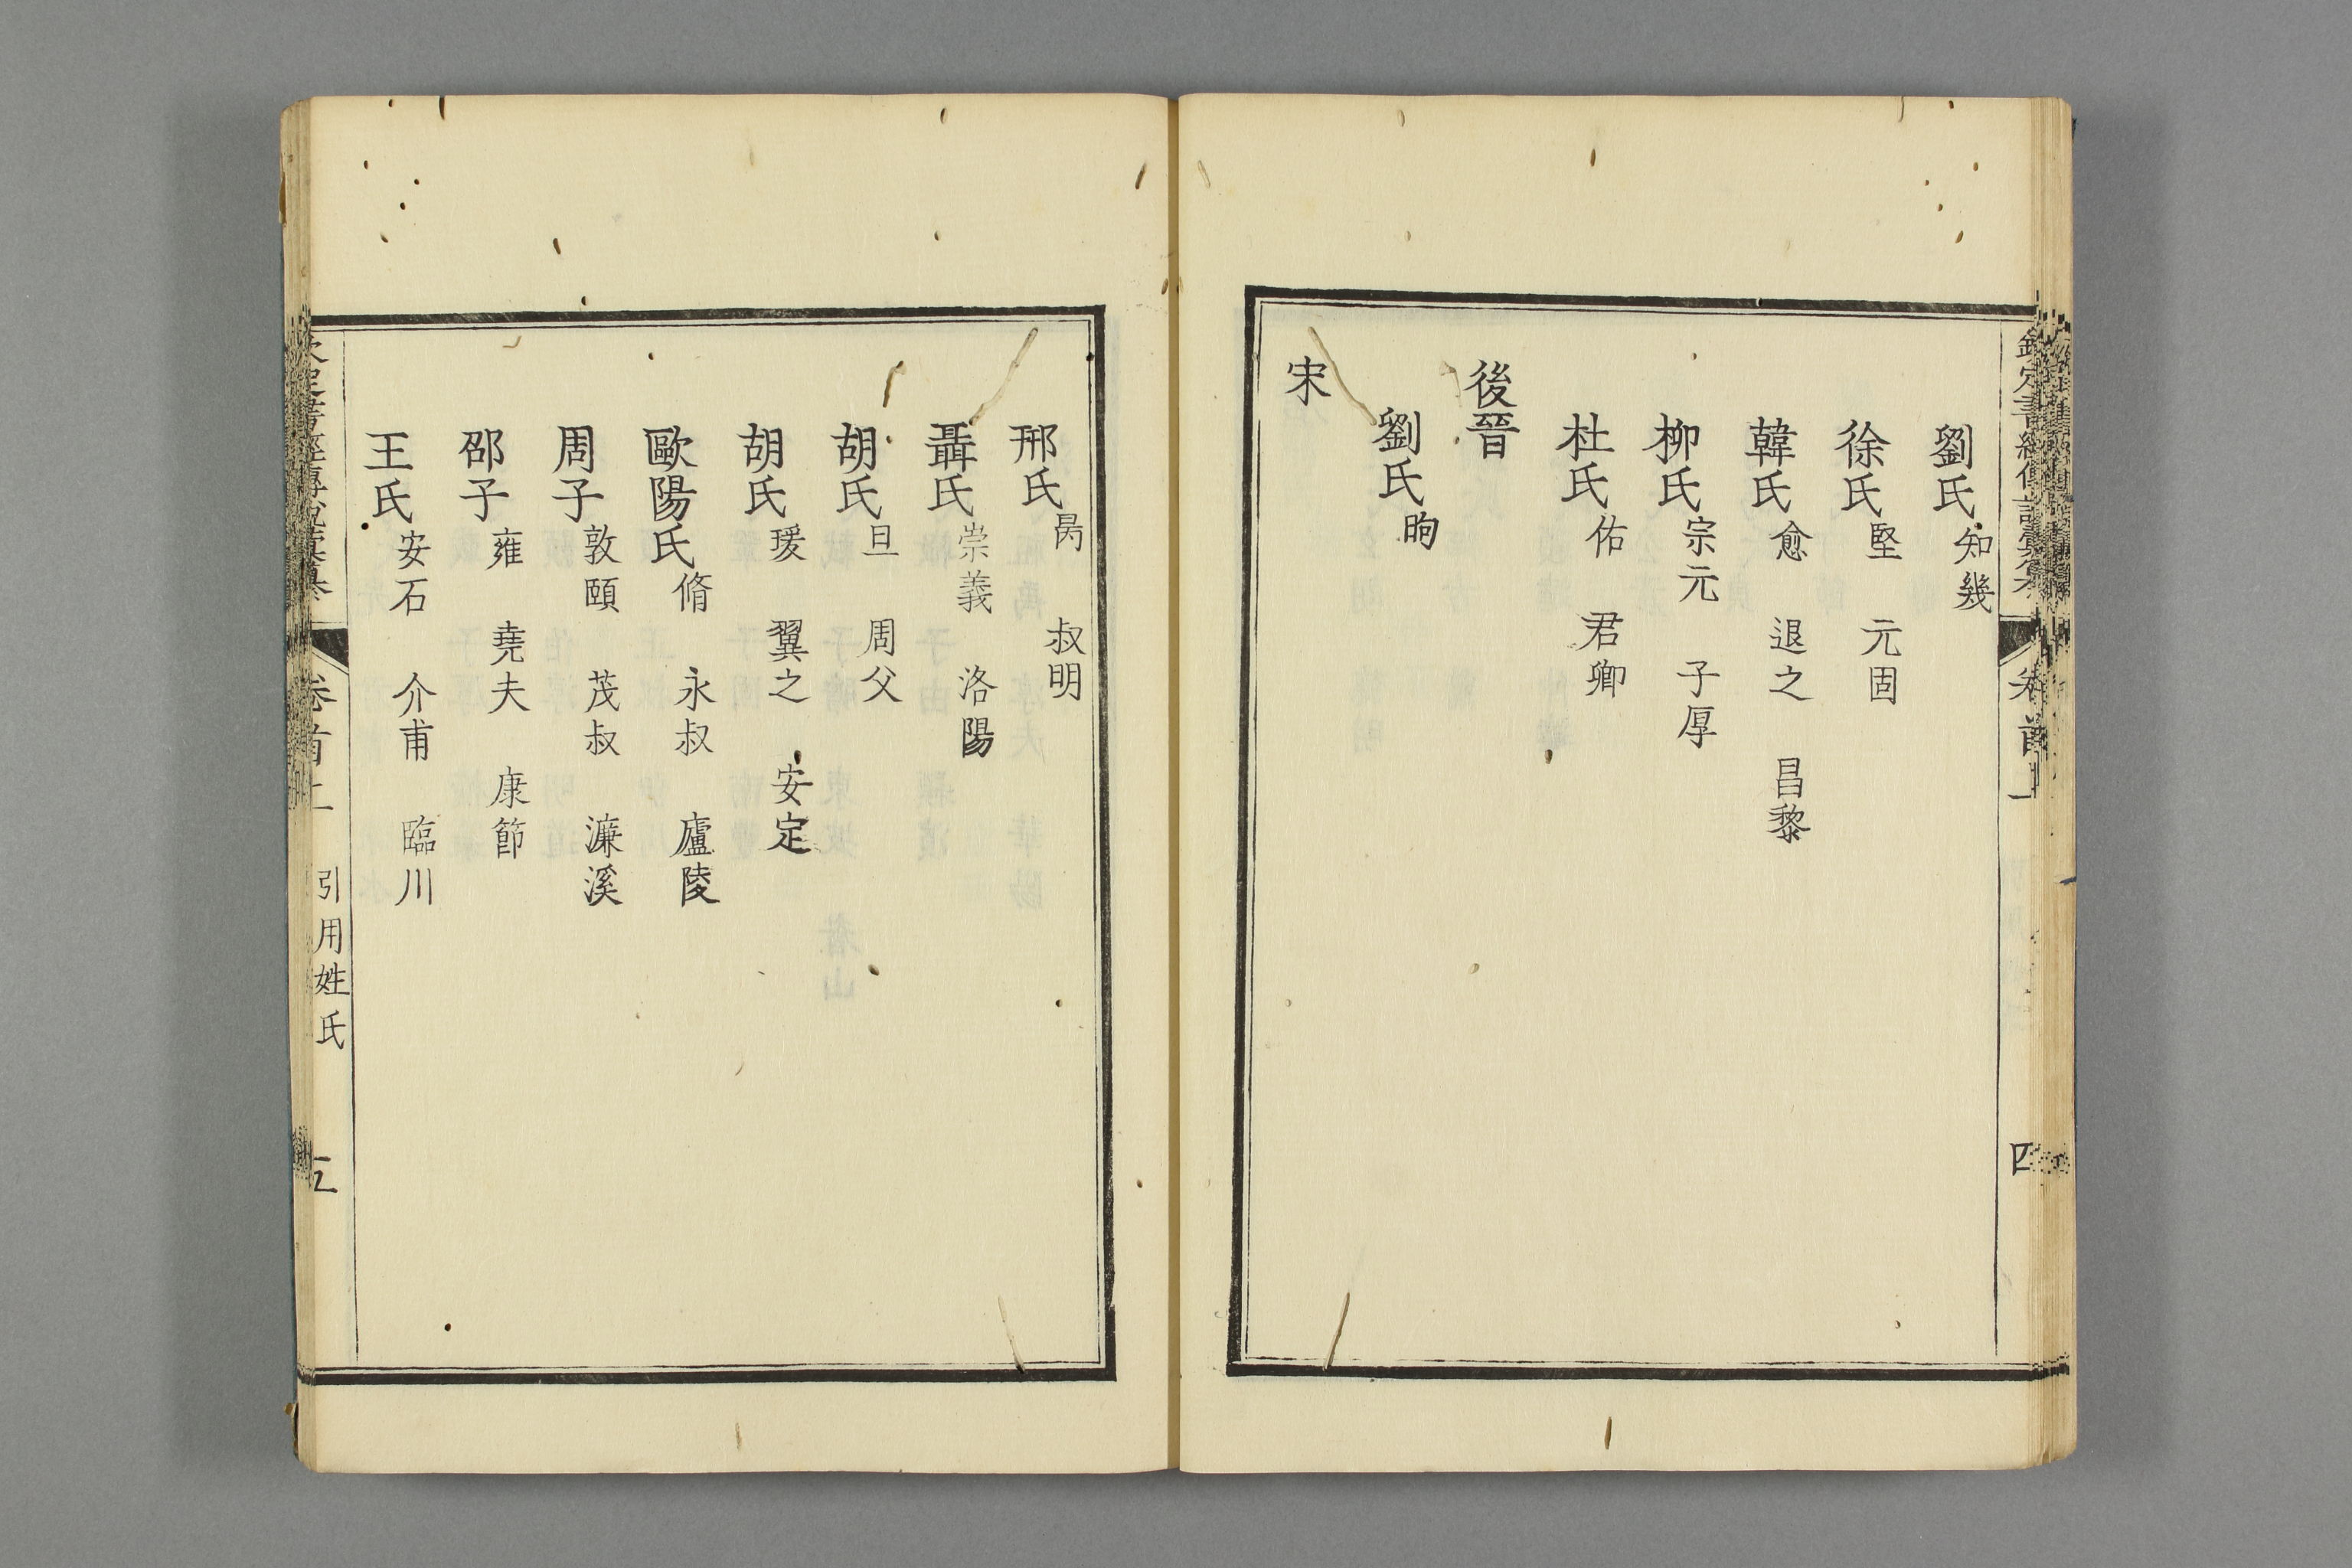 劉氏知幾
徐氏堅 元固
韓氏愈 退之 昌黎
柳氏宗元 子厚
杜氏佑 君卿
後晉
劉氏昫
宋
卷首上
四
邢氏昺 叔明
聶氏崇義 洛陽
胡氏旦 周父
胡氏瑗 翼之 安定
歐陽氏脩 永叔 廬陵
周子敦頤 茂叔 濂溪
邵子雍 堯夫 康節
王氏安石 介甫 臨川
卷首上 引用姓氏 五